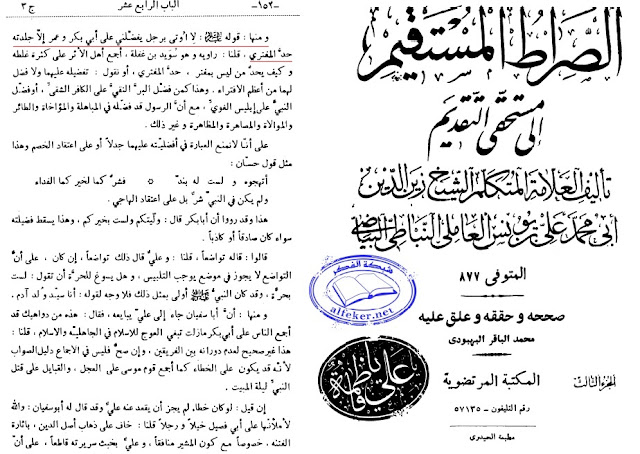 ج ٣
الباب الرابع عشر
-١٥٢-
و منها : قوله ﷺ : لا اُوتى برجل يفضّلني على أبي بكر و عمر إلاّ جلدته
حدَّ المفتري ، قلنا : راويه و هو سُوَيد بن غفلة ، أجمع أهل الأثر على كثرة غلطه
و كيف يحدُّ من ليس بمفتر ، حدَّ المفتري ، أو نقول : تفضيله عليهما ولا فضل
لهما من أعظم الافتراء . وهذا كمن فضّل البرَّ التقيَّ على الكافر الشقيِّ ، أوفضّل
النبيَّ على إبليس الغويِّ ، مع أنَّ الرسول قد فضّله في المباهلة والمؤاخاة والطائر
والموالاة والمصاهرة والمظاهرة و غير ذلك .
على أنّا لانمنع العبارة في أفضليّته عليهما جدلاً أو على اعتقاد الخصم وهذا
مثل قول حسّان :
أتهجوه و لست له بندّ * فشرُّ كما لخير كما الفداء
ولم يكن في النبيِّ شرٌّ بل على اعتقاد الهاجي .
هذا وقد رووا أن أبابكر قال : ولّيتكم ولست بخير كم ، وهذا يسقط فضيلته
سواء كان صادقاً أو كاذباً .
قالوا : قاله تواضعاً ، قلنا : و عليٌّ قال ذلك تواضعاً ، إن كان ، على أنَّ
التواضع لا يجوز في موضع يوجب التلبيس ، و هل يسوغ للحرِّ أن تقول : لست
بحرّ ، وقد كان النبيُّ ﷺ أولى بمثل ذلك فلا وجه لقوله : أنا سيّد ولد آدم .
و منها : أنَّ أبا سفيان جاء إلى عليّ يبايعه ، فقال : هذه من دواهيك قد
أجمع الناس على أبي بكر مازلت تبغي العوج للاسلام في الجاهليّة والاسلام ، قلنا :
هذا غير صحيح لعدم دورانه بين الفريقين ، وإن صحَّ فليس في الاجماع دليل الصواب
لأنّه قد يكون على الخطاء كما أجمع قوم موسى على العجل ، والقبايل على قتل
النبيِّ ليلة المبيت .
إن قيل : لوكان خطاء لم يجز أن يقعد عنه عليٌّ وقد قال له أبوسفيان : والله
لأملأنّها على أبي فصيل خيلاً و رجلاً قلنا : خاف على ذهاب أصل الدين ، باثارة
الفتنة ، خصوصاً مع كون المشير منافقاً ، و عليٌّ بخبث سريرته قاطعاً ، على أنَّ
الصراط المستقيم
إلى مستحقي التقديم
تأليف العلامة المتكلم الشيخ زين الدين
أبي محمد علي بن يونس العاملي النباطي البياضي
المتوفى ٨٧٧
شبكة الفكر
alfeker.net
صححه و حققه و علق عليه
محمد الباقر البهبودي
الجزء الثالث
المكتبة المرتضوية
رقم التليفون - ٥٧١٣٥
مطبعة الحيدري